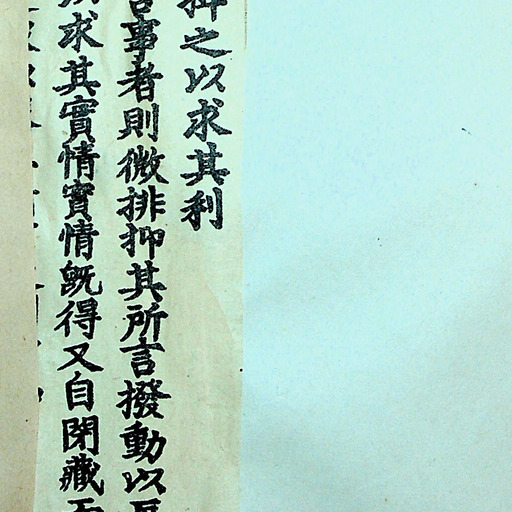 之以求其利
事者則微排抑其所言撥動以
求其實情實情既得又自閉藏